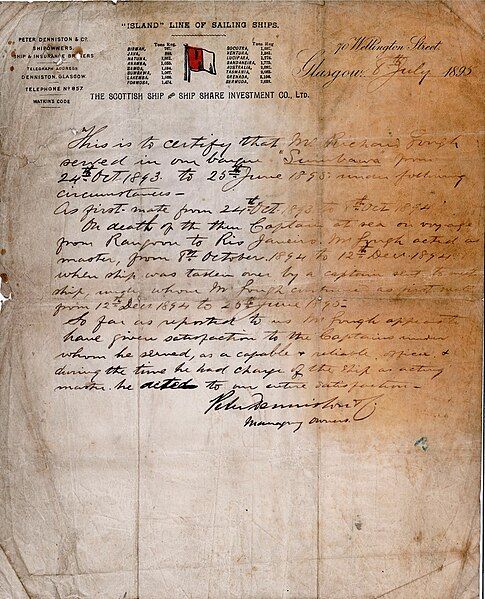 "ISLAND" LINE OF SAILING SHIPS.
PETER DENNISTON & CO.
SHIPOWNERS,
SHIP & INSURANCE BROKERS
TELEGRAPH ADDRESS
DENNISTON, GLASGOW.
TELEPHONE No 857.
WATKINS CODE
Tons Reg.
JAVA,
NATUNA,
BANCA,
SUMBAWA,
LAKEMBA,
Tons Reg.
SOCOTRA,
VENTURA,
LUCIPARA,
TASMANIA,
BERMUDA,
THE SCOTTISH SHIP AND SHIP SHARE INVESTMENT CO., LTD.
70 Wellington Street
Glasgow, 8th July 1895
This is to certify that Mr Richard Gough
served in our barque "Sumbawa" from
24th Oct 1893 to 25th June 1895 under following
circumstances —
As first mate from 24th Oct 1893 to 8th Oct 1894
On death of the then Captain at sea on voyage
from Rangoon to Rio Janeiro Mr Gough acted as
master, from 8th October 1894 to 12th Decr 1894
when ship was taken over by a captain sent to
ship, under whom Mr Gough as first mate
from 12th Decr 1894 to 25th June 1895 —
So far as reported to us Mr Gough appears to
have given satisfaction to the Captains under
whom he served, as a capable & reliable officer &
during the time he had charge of the ship as acting
master he acted to our entire satisfaction —
Peter Denniston & Co
Managing Owners